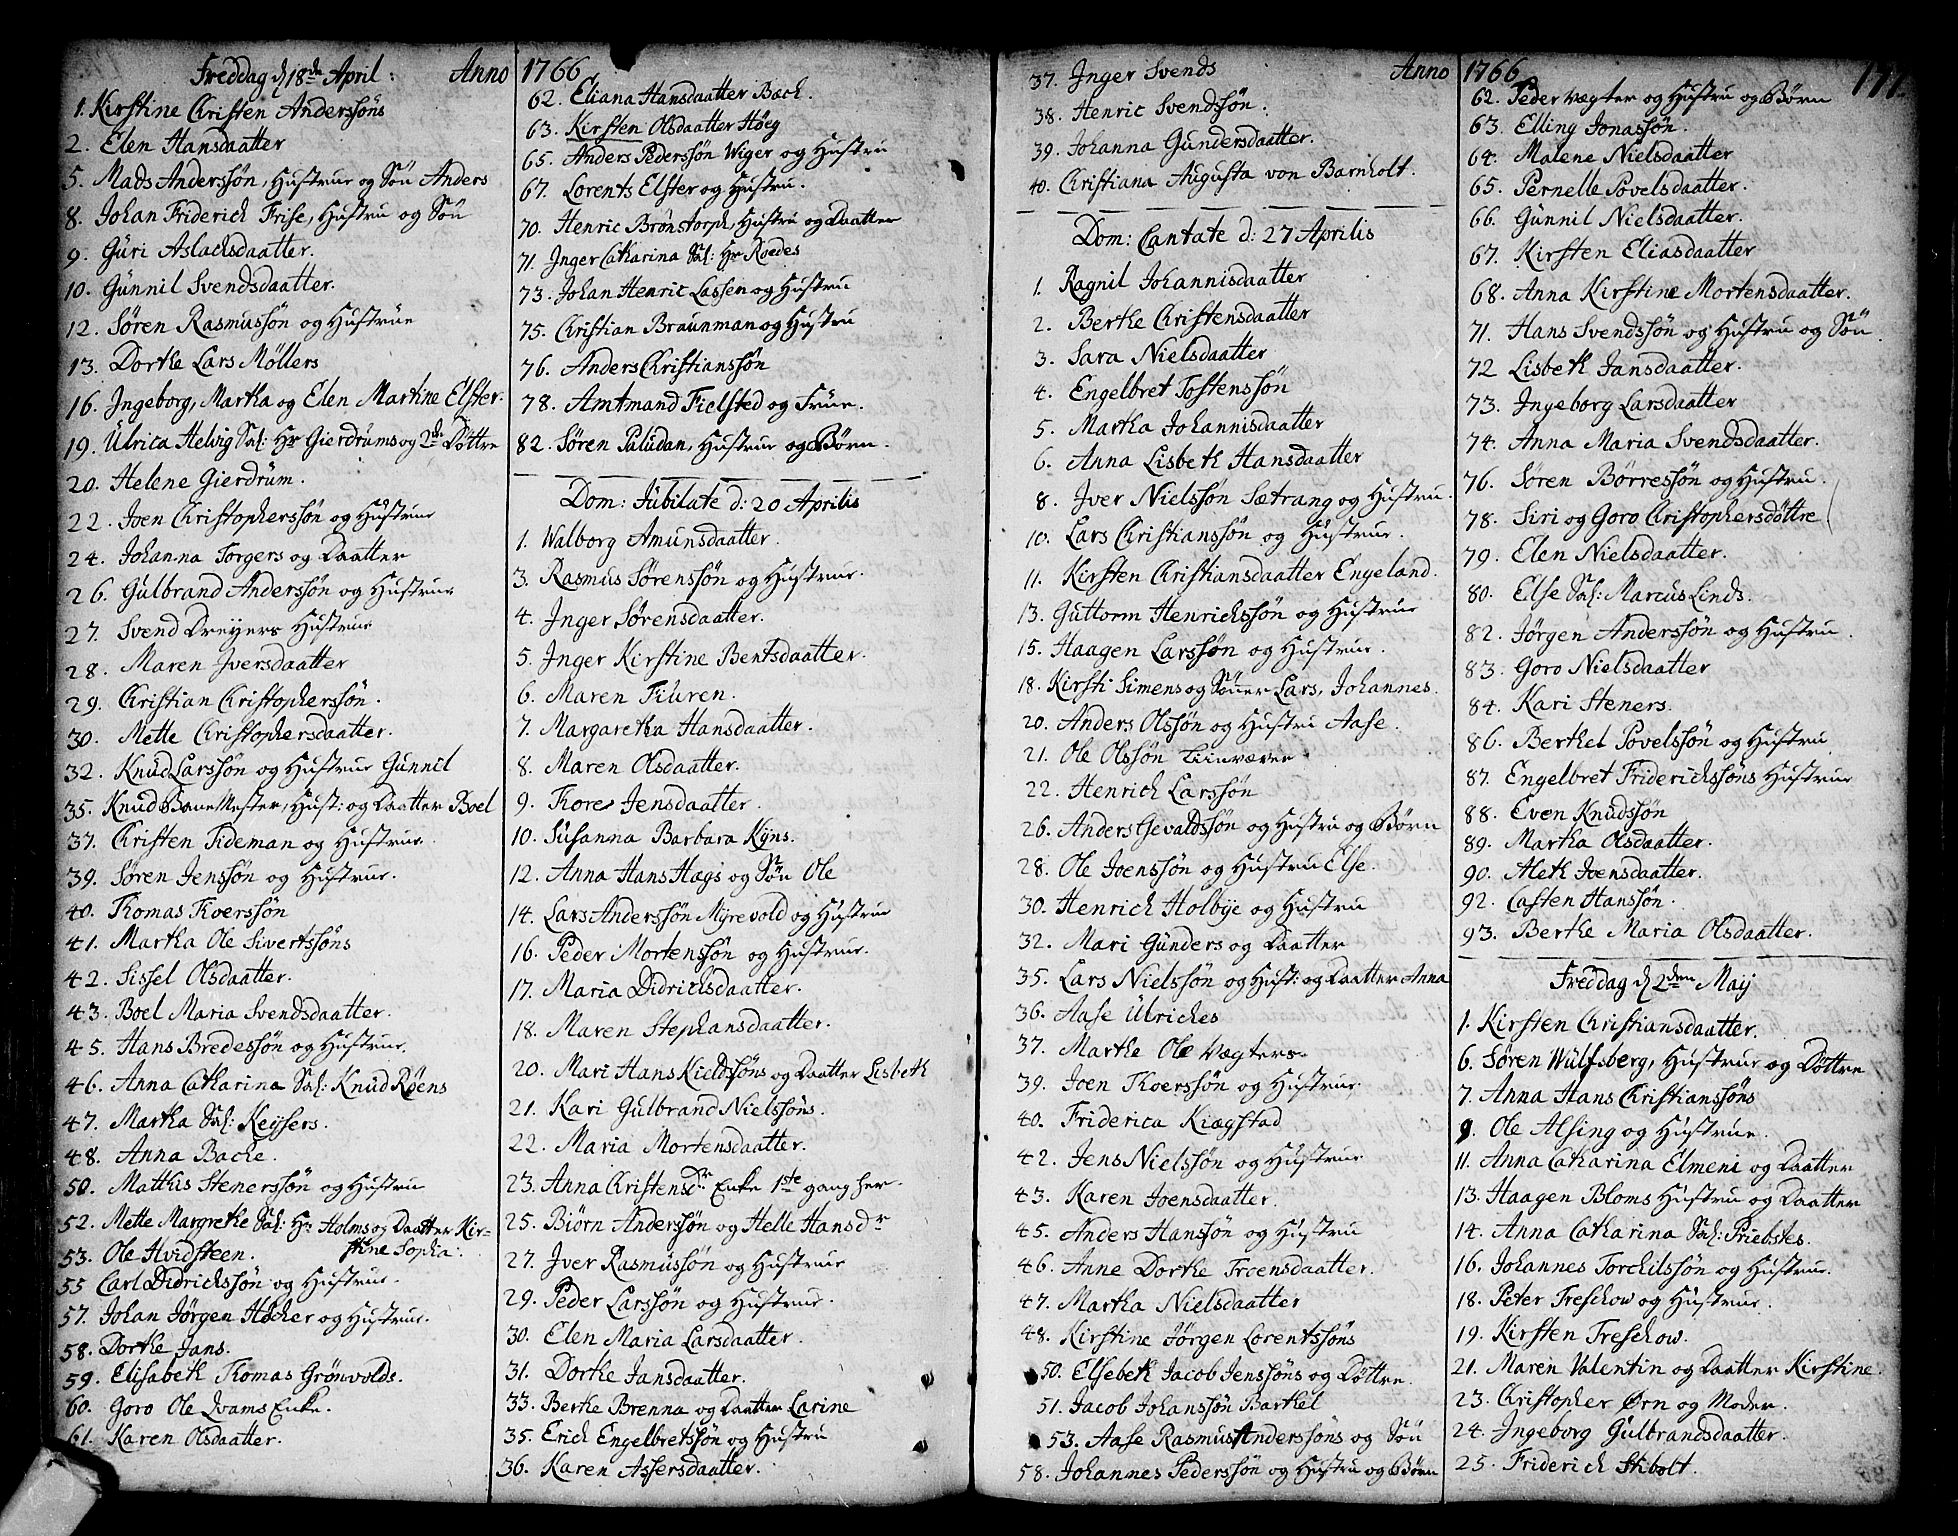 Freddag d 18de April: Anno
1. Kirstine Christen Anderssøns
2. Elen Hansdaatter
5. Mads Anderssøn, Hustrue og Søn Anders
8. Johan Friderich Frise, Hustru og Søn
9. Guri Aslachsdaatter.
10. Gunnil Svendsdaatter.
12. Søren Rasmussøn og Hustrue
13. Dorthe Lars Møllers
16. Ingeborg, Martha og Elen Martine Elster.
19. Ulrica Helvig Sal: Hr Gierdrums og 2de Døttre
20. Helene Gierdrum.
22. Joen Christopherssøn og Hustrue
24. Johanna Torgers og Daatter
26. Gulbrand Anderssøn og Hustrue
27. Svend Dreyers Hustrue
28. Maren Iversdaatter
29. Christian Christopherssøn.
30. Mette Christophersdaatter.
32. Knud Larssøn og Hustrue Gunnil
35. Knud BaneMester, Hust: og Daatter Boel
37. Christen Tideman og Hustrue.
39. Søren Jenssøn og Hustrue.
40. Thomas Thverssøn
41. Martha Ole Sivertssøns
42. Sissel Olsdaatter.
43. Boel Maria Svendsdaatter.
45. Hans Bredessøn og Hustrue.
46. Anna Catharina Sal: Knud Røens
47. Martha Sal: Keysers.
48. Anna Backe.
50. Matthis Stenerssøn og Hustru
52. Mette Margrethe Sal: Hr Holms og Daatter Kir-
stine Sophia.
53. Ole Hvidsteen.
55 Carl Didrichssøn og Hustrue.
57. Johan Jørgen Höcher og Hustrue.
58. Dorthe Jans.
59. Elisabeth Thomas Grönvolds.
60. Goro Ole Qvams Enke.
61. Karen Olsdaatter.
1766
62. Eliana Hansdaatter Bach.
63. Kirsten Olsdaatter Høeg
65. Anders Pederssøn Wiger og Hustru
67. Lorents Elster og Hustru.
70. Henric Brönstorph, Hustru og Daatter
71. Inger Catharina Sal: Hr Roedes
73. Johan Henric Lassen og Hustru
75. Christian Braunman og Hustru
76. Anders Christianssøn
78. Amtmand Fielsted og Frue.
82. Søren Paludan, Hustrue og Børn.
Dom: Jubilate d: 20 Aprilis
1. Walborg Amunsdaatter.
3. Rasmus Sørenssøn og Hustrue.
4. Inger Sørensdaatter.
5. Inger Kirstine Bentsdaatter.
6. Maren Fiuren.
7. Margaretha Hansdaatter.
8. Maren Olsdaatter.
9. Thore Jensdaatter.
10. Susanna Barbara Kyns.
12. Anna Hans Hægs og Søn Ole
14. Lars Anderssøn Myrevold og Hustrue
16. Peder Mortenssøn og Hustrue.
17. Maria Didrichsdaatter.
18. Maren Stephansdaatter.
20. Mari Hans Kieldssøns og Daatter Lisbeth
21. Kari Gulbrand Nielssøns.
22. Maria Mortensdaatter.
23. Anna Christensdr Enke 1ste gang her.
25. Biørn Anderssøn og Helle Hansdr
27. Iver Rasmussøn og Hustrue
29. Peder Larssøn og Hustrue.
30. Elen Maria Larsdaatter.
31. Dorthe Jansdaatter.
33. Berthe Brenna og Daatter Carine
35. Erich Engelbretssøn og Hustru
36. Karen Assersdaatter.
Anno
37. Inger Svends
38. Henric Svendssøn.
39. Johanna Gundersdaatter.
40. Christiana Augusta von Barnholt.
Dom: Cantate d: 27 Aprilis
1. Ragnil Johannisdaatter
2. Berthe Christensdaatter
3. Sara Nielsdaatter
4. Engelbret Tostenssøn
5. Martha Johannisdaatter
6. Anna Lisbeth Hansdaatter
8. Iver Nielssøn Sætrang og Hustru.
10. Lars Christianssøn og Hustrue.
11. Kirsten Christiansdaatter Engeland.
13. Guttorm Henrichssøn og Hustrue
15. Haagen Larssøn og Hustrue.
18. Kirsti Simens og Sønner Lars, Johannes.
20. Anders Olssøn og Hustru Aase.
21. Ole Olssøn
22. Henrich Larssøn
26. Anders Gevaldssøn og Hustru og Børn
28. Ole Joenssøn og Hustru Else.
30. Henrich Holbye og Hustru
32. Mari Gunders og Daatter
35. Lars Nielssøn og Hust: og Daatter Anna
36. Aase Ulriches
37. Marthe Ole Vægters
39. Joen Thoerssøn og Hustrue.
40. Friderica Kiægstad
42. Jens Nielssøn og Hustrue
43. Karen Joensdaatter.
45. Anders Hanssøn og Hustru
46. Anne Dorthe Troensdaatter.
47. Martha Nielsdaatter
48. Kirstine Jørgen Lorentssøns
50. Elsebeth Jacob Jenssøns og Døttre.
51. Jacob Johanssøn Barthel
53. Aase Rasmus Anderssøns og Søn
58. Johannes Pederssøn og Hustru og Børn
1766
177.
62. Peder Vægter og Hustru og Børn
63. Elling Jonassøn.
64. Malene Nielsdaatter
65. Pernelle Povelsdaatter.
66. Gunnil Nielsdaatter.
67. Kirsten Eliasdaatter
68. Anna Kirstine Mortensdaatter.
71. Hans Svendssøn og Hustru og Søn
72 Lisbeth Jansdaatter.
73. Ingeborg Larsdaatter
74. Anna Maria Svendsdaatter.
76. Søren Børressøn og Hustru.
78. Siri og Goro Christophersdøttre
79. Elen Nielsdaatter.
80. Else Sal: Marcus Linds.
82. Jørgen Anderssøn og Hustru.
83. Goro Nielsdaatter
84. Kari Steners.
86. Berthel Povelssøn og Hustru
87. Engelbret Friderichssøns Hustrue
88. Even Knudssøn
89. Martha Olsdaatter.
90. Aleth Joensdaatter.
92. Casten Hanssøn.
93. Berthe Maria Olsdaatter.
Freddag d 2den Maij
1. Kirsten Christiansdaatter.
6. Søren Wulfsberg, Hustrue og Døttre
7. Anna Hans Christianssøns
9. Ole Alsing og Hustrue.
11. Anna Catharina Elmeni og Daatter
13. Haagen Bloms Hustru og Daatter
14. Anna Catharina Sal: Priebstes.
16. Johannes Torchilssøn og Hustrue.
18. Peter Treschow og Hustrue.
19. Kirsten Treschow.
21. Maren Valentin og Daatter Kirstine.
23. Christopher Ørn og Moder.
24. Ingeborg Gulbrandsdaatter.
25. Friderich Stibolt.